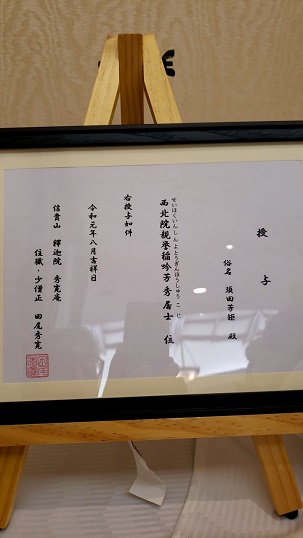 授与
俗名 須田芳姫 殿
せいほくいんしんよとうぎんほうしゅうこじ
西北院親誉稲吟芳秀居士 位
右授与如件
令和元年八月吉祥日
信貴山 釋迦院 秀寛庵
住職・少僧正 田尾秀寛